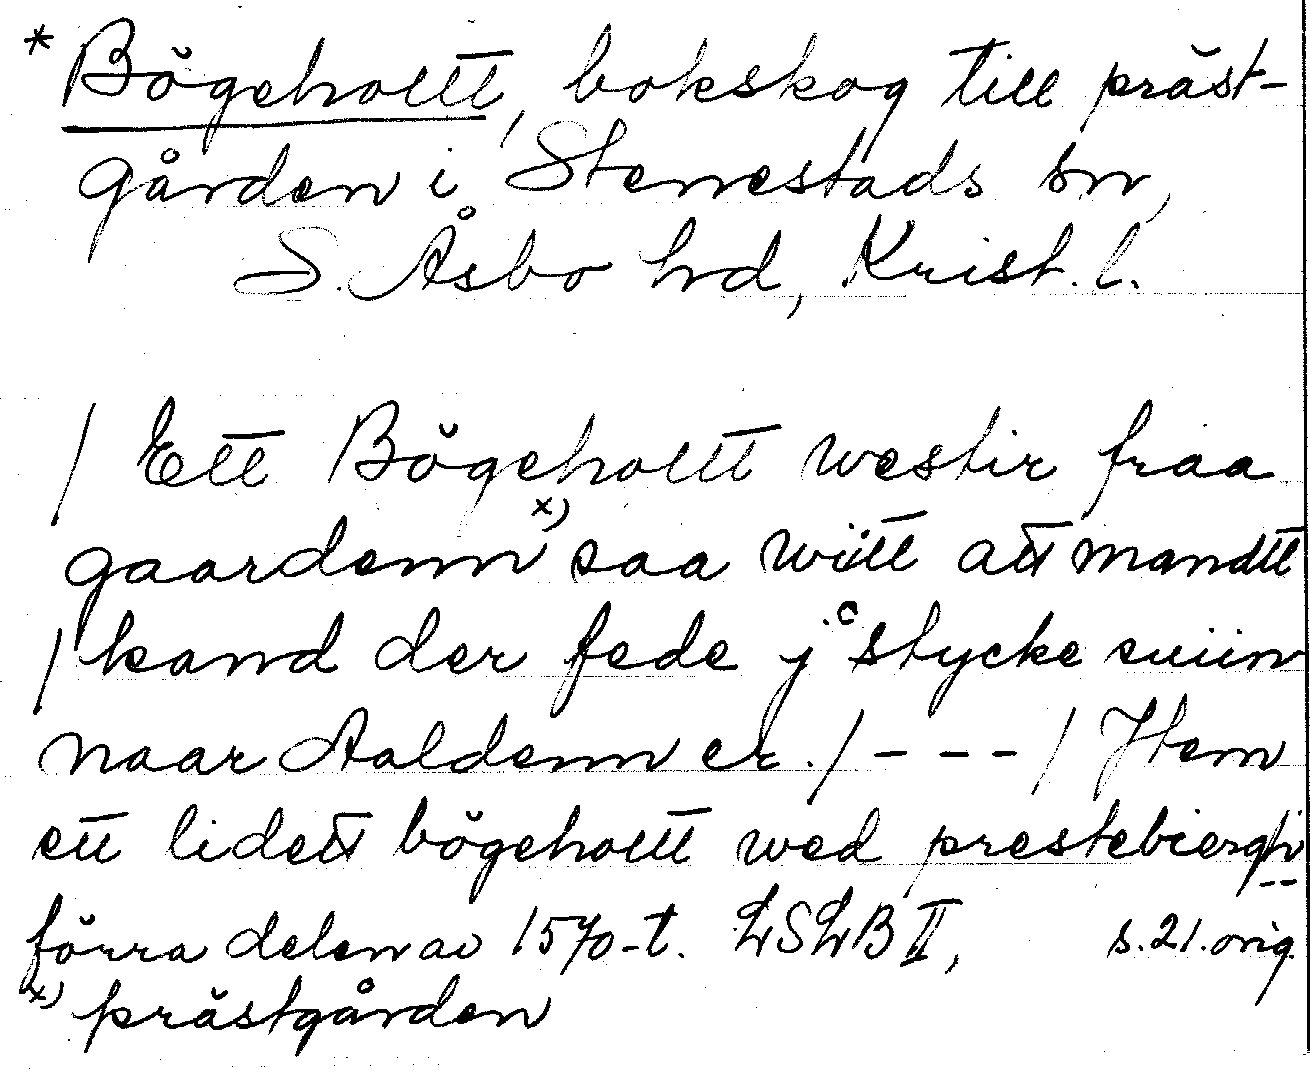 * Bögeholtt, bokskog till präst-
gården i Stenestads sn,
S. Åsbo hd, Krist. l.
/ Ett Bögeholtt westir fraa
gaardenn x) saa witt att mandtt
/ kand der fede j c stycke suiin
naar Aaldenn er. / - - - / Jtem
ett lidett bögeholtt wed prestebiergh
förra delen av 1570-t. LSLB II, s. 21. orig.
x) prästgården